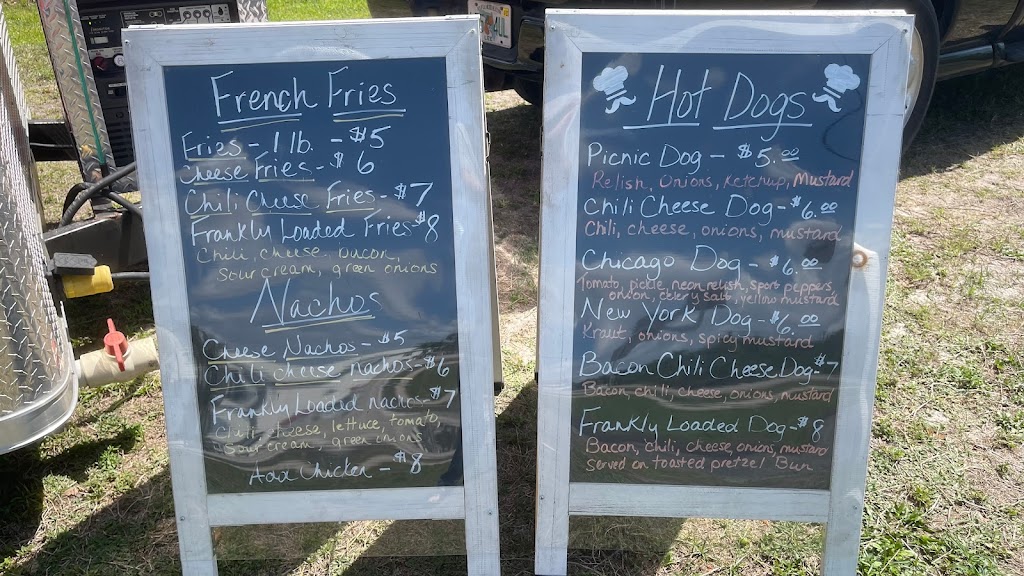 French Fries
Fries - 1 lb. - $5
Cheese Fries - $6
Chili Cheese Fries - $7
Frankly Loaded Fries - $8
Chili, cheese, bacon,
sour cream, green onions
Nachos
Cheese Nachos - $5
Chili cheese nachos - $6
Frankly Loaded nachos - $7
Chili, cheese, lettuce, tomato,
sour cream, green onions
Add Chicken - $8
Hot Dogs
Picnic Dog - $5.00
Relish, Onions, Ketchup, Mustard
Chili Cheese Dog - $6.00
Chili, cheese, onions, mustard
Chicago Dog - $6.00
Tomato, pickle, neon relish, sport peppers,
onion, celery salt, yellow mustard
New York Dog - $6.00
Kraut, onions, spicy mustard
Bacon Chili Cheese Dog - $7
Bacon, chili, cheese, onions, mustard
Frankly Loaded Dog - $8
Bacon, chili, cheese, onions, mustard
served on toasted pretzel Bun